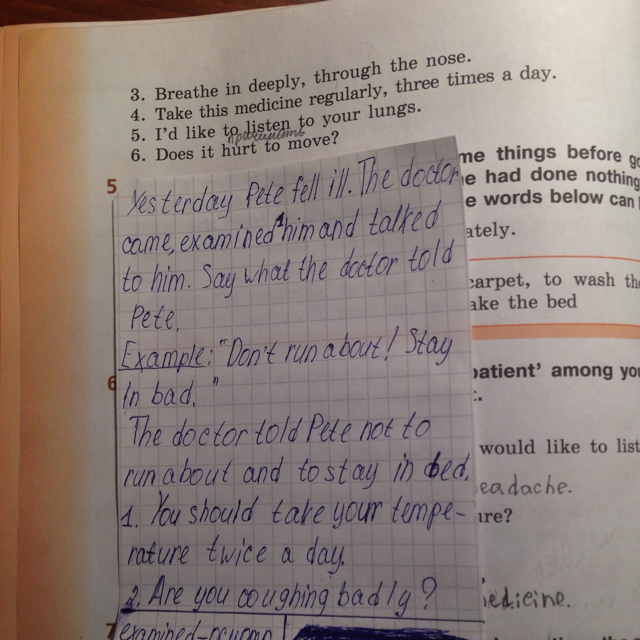 3. Breathe in deeply, through the nose.
4. Take this medicine regularly, three times a day.
5. I'd like to listen to your lungs.
6. Does it hurt to move?
me things before
e had done nothing
e words below can
ately.
carpet, to wash the
ake the bed
patient' among you
would like to list
eadache.
ure?
edicine.
5
6
7
Yesterday Pete fell ill. The doctor
came, examined 1 him and talked
to him. Say what the doctor told
Pete.
Example: "Don't run about! Stay
in bad."
The doctor told Pete not to
run about and to stay in bed.
1. You should take your tempe-
rature twice a day.
2. Are you coughing badly?
examined-